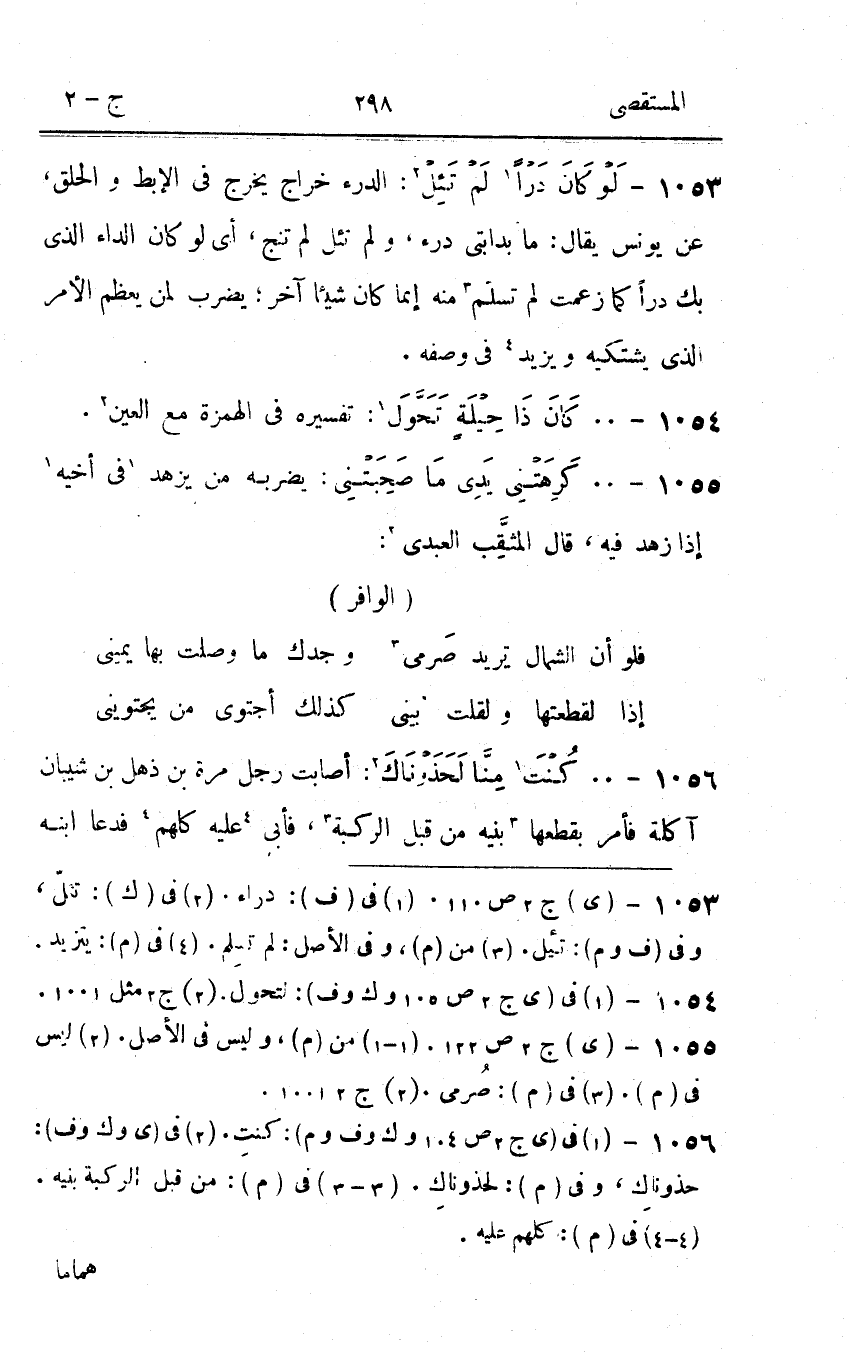 المستقصى ٢٩٨ ج - ٢
١٠٥٣ - لَوْ كَانَ دَرْأً¹ لَمْ تَئِلْ²: الدرء خراج يخرج فى الإبط و الحلق،
عن يونس يقال: ما بدابتى درء، و لم تئل لم تنج، أى لو كان الداء الذى
بك درأً كما زعمت لم تسلم³ منه إنما كان شيئا آخر؛ يضرب لمن يعظم الأمر
الذى يشتكيه و يزيد⁴ فى وصفه .
١٠٥٤ - .. كَانَ ذَا حِيْلَةٍ تَحَوَّلَ¹: تفسيره فى الهمزة مع العين² .
١٠٥٥ - .. كَرِهَتْنِي يَدِى مَا صَحِبَتْنِي: يضربه من يزهد ¹فى أخيه¹
إذا زهد فيه، قال المثقِّب العبدى²:
( الوافر )
فلو أن الشمال تريد صَرمى³ و جدك ما وصلت بها يمينى
إذا لقطعتها و لقلت بينى كذلك أجتوى من يجتوينى
١٠٥٦ - .. كُنْتَ¹ مِنَّا لَحَذَوْنَاكَ²: أصابت رجل مرة بن ذهل بن شيبان
آكلة فأمر بقطعها ³بنيه من قبل الركبة³، فأبى ⁴عليه كلهم⁴ فدعا ابنه
١٠٥٣ - (ى) ج ٢ ص ١١٠ . (١) فى (ف): دراء . (٢) فى (ك): تئلّ،
و فى (ف و م): تئيل. (٣) من (م)، و فى الأصل: لم تعلم. (٤) فى (م): يتزيد .
١٠٥٤ - (١) فى (ى ج ٢ ص ١٠٥ و ك و ف): لتحول. (٢) ج ٢ مثل ١٠٠١ .
١٠٥٥ - (ى) ج ٢ ص ١٢٢ . (١-١) من (م)، و ليس فى الأصل. (٢) ليس
فى (م). (٣) فى (م): صُرمى .(٢) ج ٢ ١٠٠١ .
١٠٥٦ - (١) فى (ى ج ٢ ص ١٠٤ و ك و ف و م): كنتِ. (٢) فى (ى و ك و ف):
حذوناكِ، و فى (م): لحذوناكِ . (٣-٣) فى (م): من قبل الركبة بنيه .
(٤-٤) فى (م): كلهم عليه .
هماما